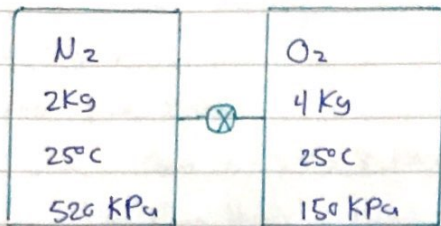 N2
2Kg
25°C
520 KPa
O2
4 Kg
25°C
150 KPa